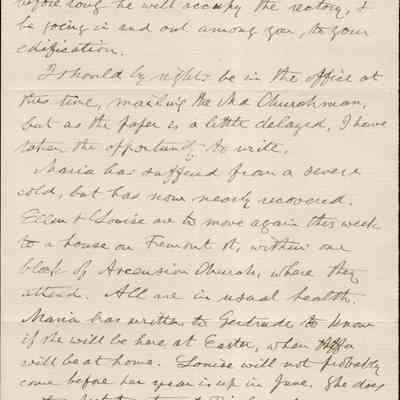 before long he will occupy the rectory, &
be going in and out among you, to your
edification.
I should by rights be in the office at
this time, mailing the Md Churchman,
but as the paper is a little delayed, I have
taken the opportunity to write.
Maria has suffered from a severe
cold, but has now nearly recovered.
Ellen & Louise are to move again this week
to a house on Fremont St, within one
block of Ascension Church, where they
attend. All are in usual health.
Maria has written to Gertrude to know
if she will be here at Easter, when
will be at home. Louise will not probably
come before her year is up in June. She does